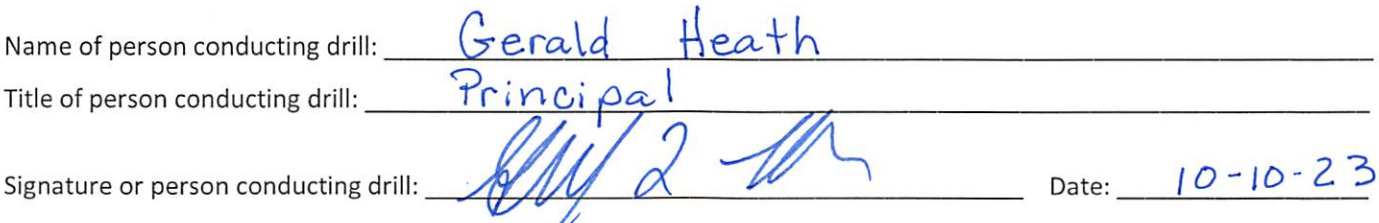 Name of person conducting drill: Gerald Heath
Title of person conducting drill: Principal
Signature or person conducting drill: Date: 10-10-23